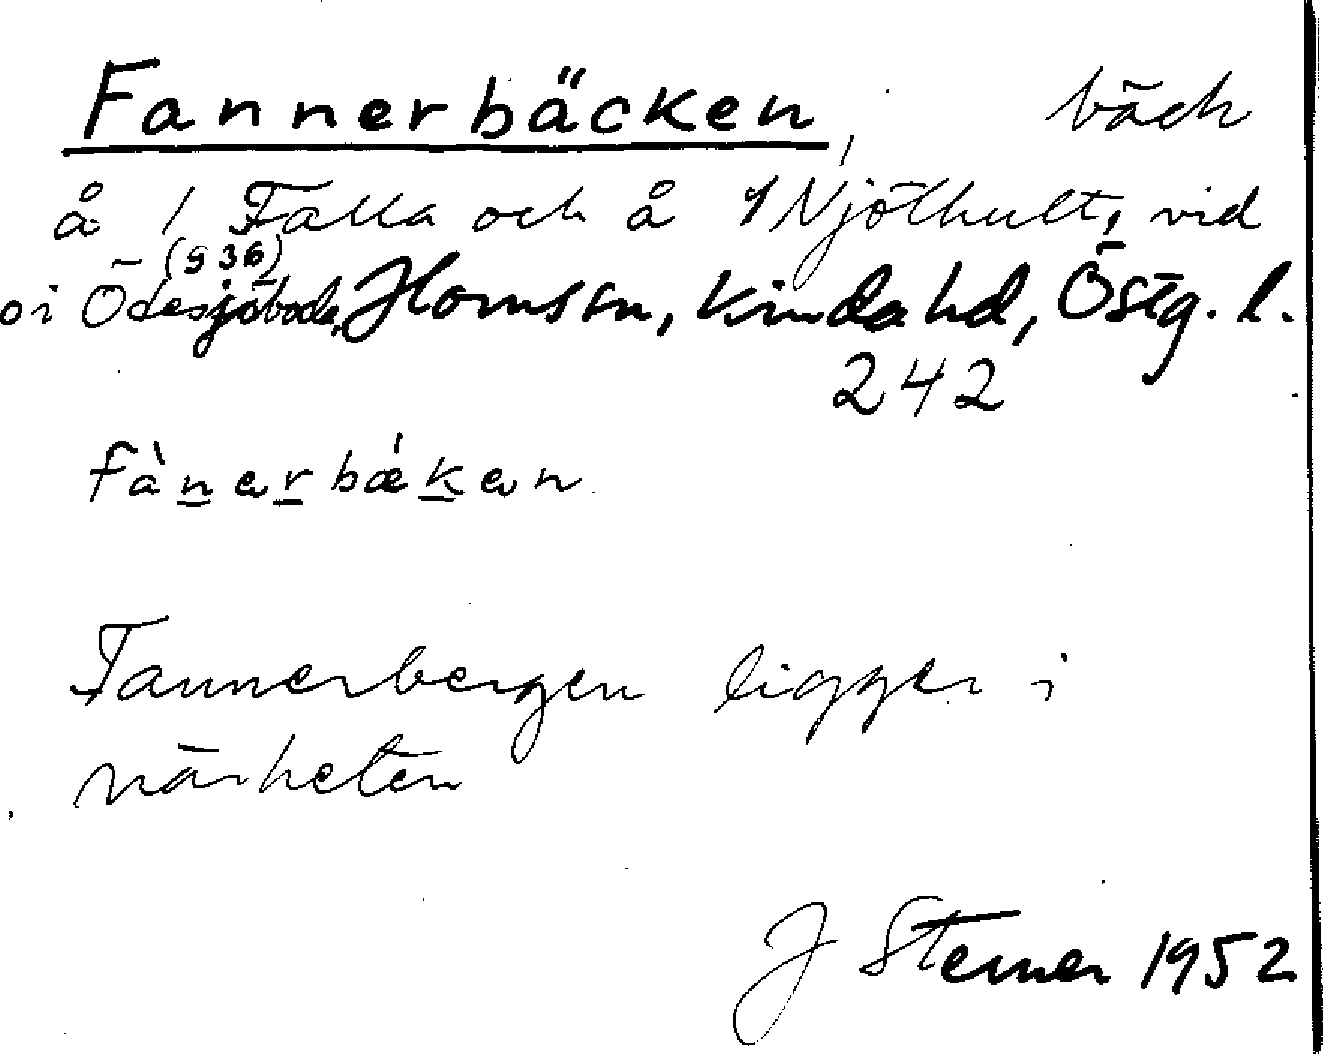 Fannerbäcken, bäck
å 1 Falla och å 1 Njölhult, vid
(936)
o i Ödesjöboda, Horns sn, Kinda hd, Östg. l.
242
fànerbǽken
Fannerbergen ligger i
närheten
J Sterner 1952